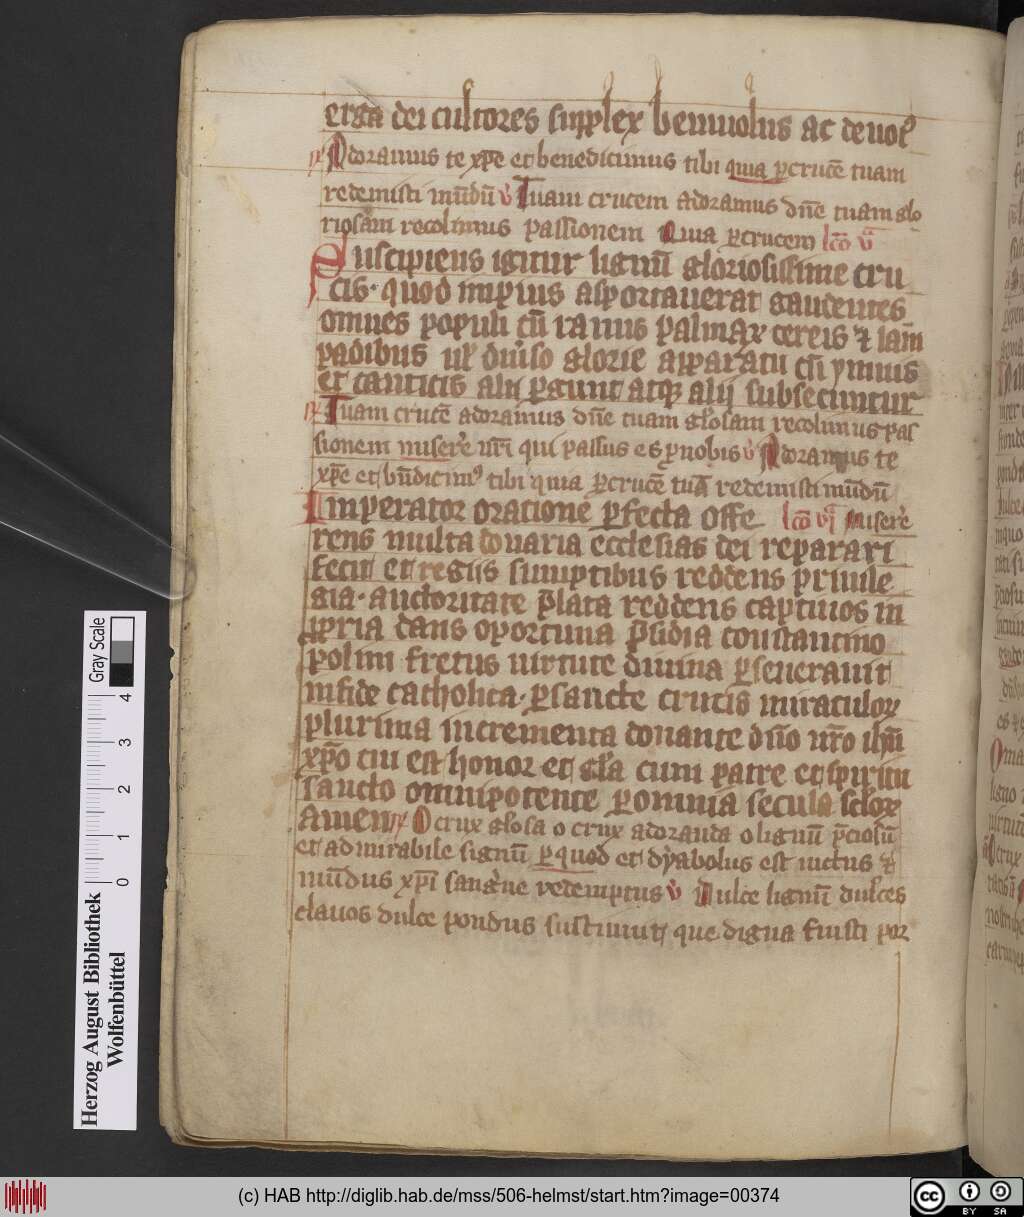 erga dei cultores supplex beniuolus ac deuot᷒
℟ Adoramus te xp̄e et benedicimus tibi quia ꝑcrucē tuam
redemisti mūdū v̓ Tuam crucem adoramus dn̄e tuam glo
riosam recolimus passionem Quia ꝑcrucem lc̄o v̄
Suscipiens igitur lignū gloriosissime cru
cis· quod impius asportauerat gaudentes
omnes populi cū ramis palmaꝝ cereis ⁊ lam
padibus uł diuso glorie apparatu cū ymnis
et canticis alii ꝑgunt atqꝫ alij subsecuntur
℟ Tuam crucē adoramus dn̄e tuam gl̓osam recolimus pas
sionem miserē nr̄i qui passus es ꝓnobis v̓ Adoramus te
xp̄e et bn̄dicim᷒ tibi quia ꝑcrucē tuā redemisti mūdū
Imperator oratione ꝑfecta offe lc̄o vı̄ Miserē
rens multa donaria ecclesias dei reparari
fecit et regiis sumptibus reddens priuile
gia· auctoritate p̄lata reddens captiuos in
ipria dans oportuna p̄sidia constantino
polim fretus uirtute diuina ꝑseuerauit
infide catholica· ꝑsancte crucis miraculoꝝ
plurima incrementa donante dn̄o nr̄o ihū
xp̄o cui est honor et gl̄a cum patre et spiritu
sancto omnipotente ꝑomnia secula scl̓oꝝ
Amen ℟ O crux gl̓osa o crux adoranda o lignū p̄ciosū
et admirabile signū ꝑquod et dyabolus est uictus ⁊
mūdus xp̄i sang̓ne redemptus v̓ Dulce lignū dulces
clauos dulce pondus sustinuit que digna fuisti por
Herzog August Bibliothek
Wolfenbüttel
0 1 2 3 4
Gray Scale
(c) HAB http://diglib.hab.de/mss/506-helmst/start.htm?image=00374
cc BY SA